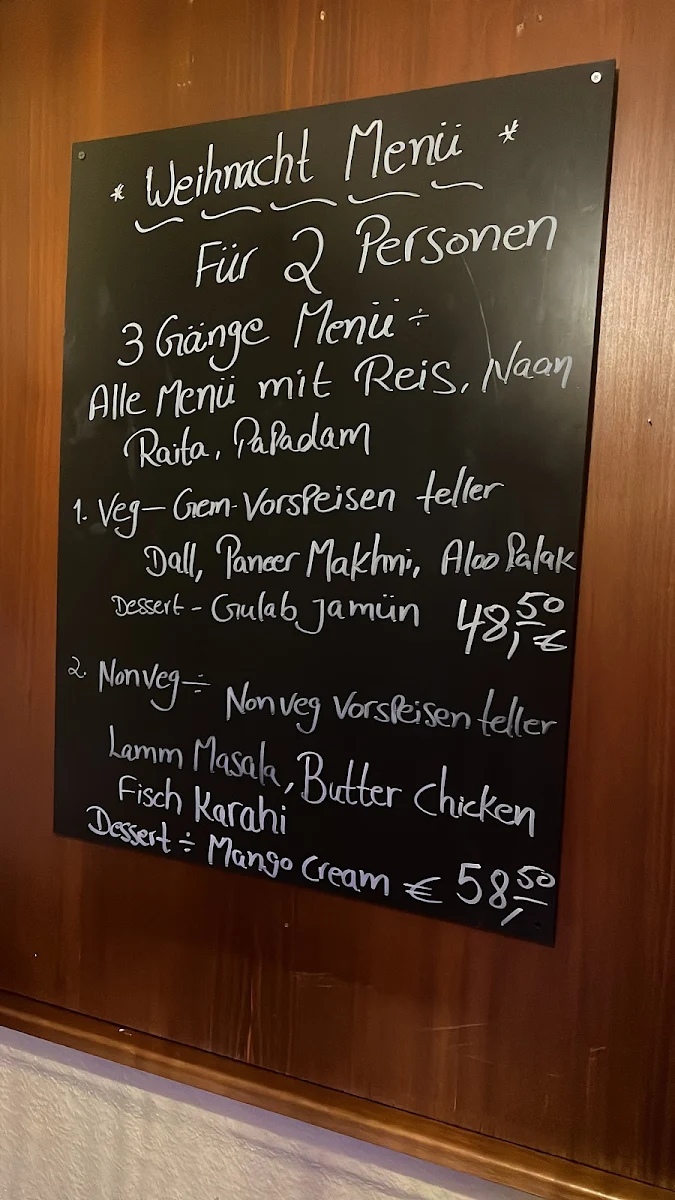 * Weihnacht Menü *
Für 2 Personen
3 Gänge Menü ÷
Alle Menü mit Reis, Naan
Raita, Papadam
1. Veg - Gem-Vorspeisen teller
Dall, Paneer Makhni, Aloo Palak
Dessert - Gulab jamün 48,50 €
2. Nonveg ÷ Nonveg Vorspeisen teller
Lamm Masala, Butter Chicken
Fisch Karahi
Dessert ÷ Mango Cream € 58,50